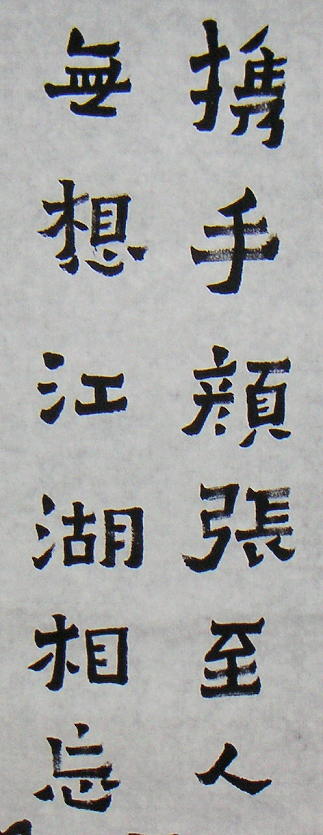 携手顔張至人
無想江湖相忘